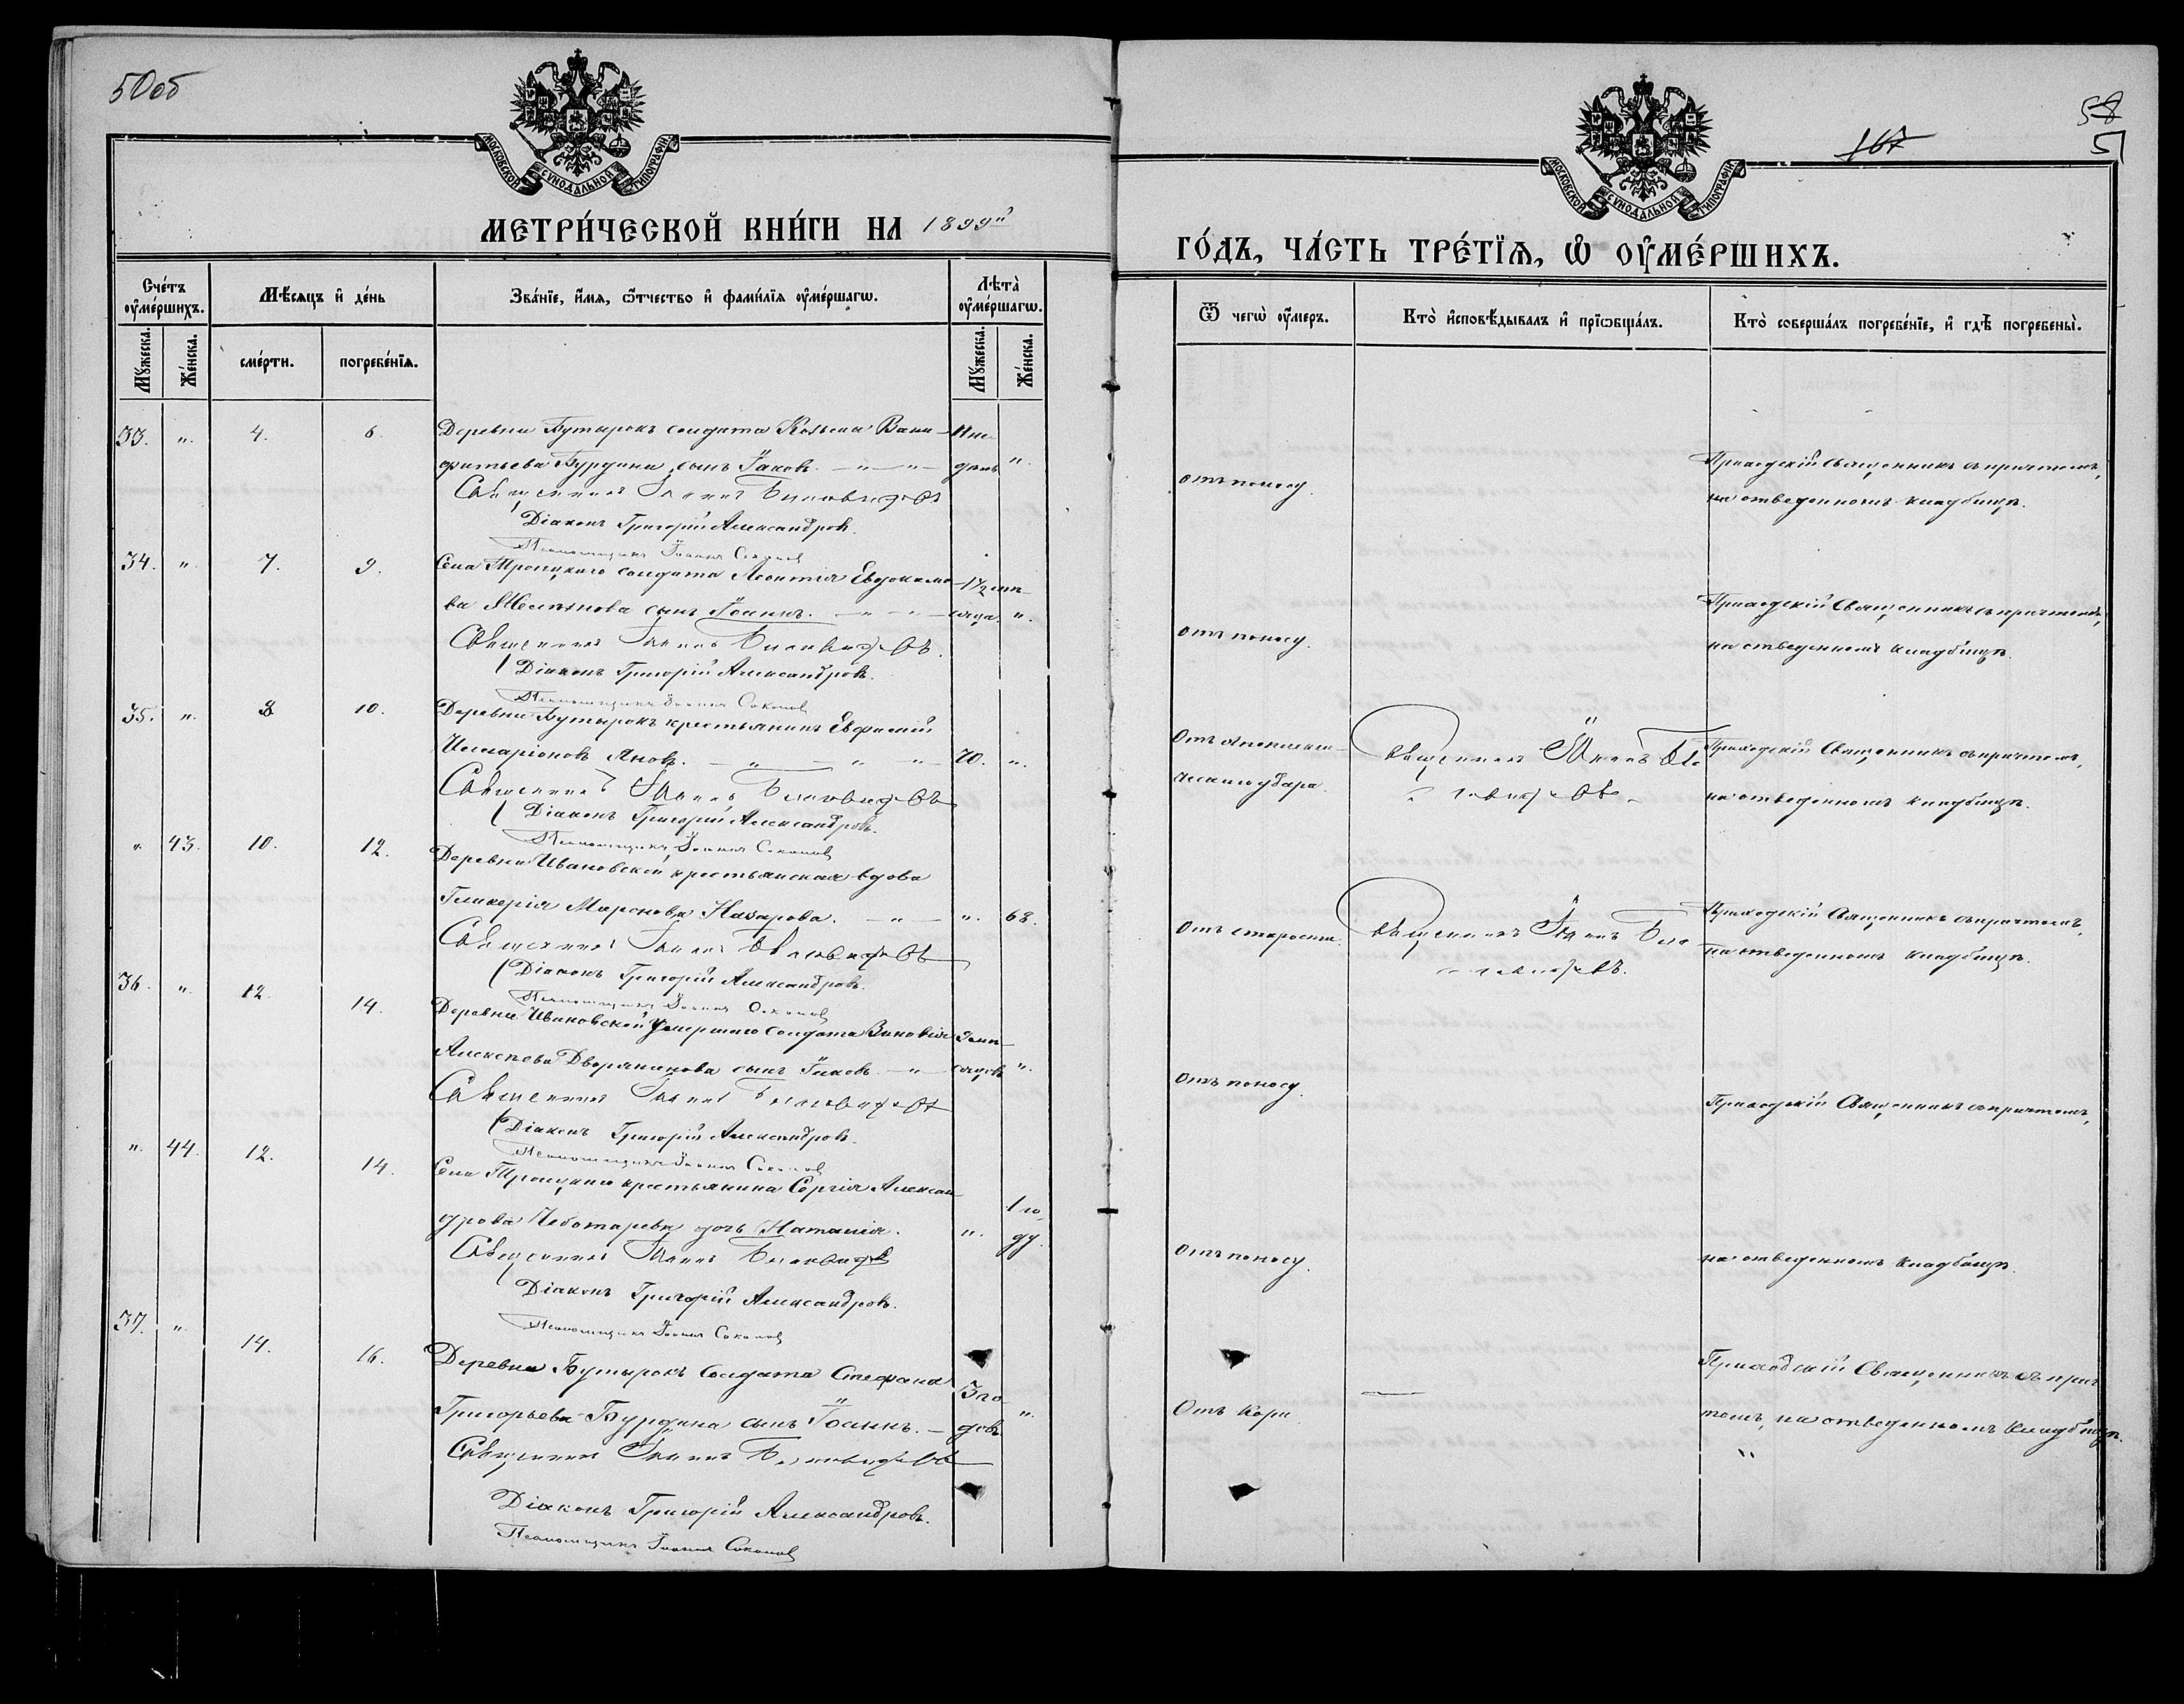 50об
МОСКОВСКОЙ СѴНОДАЛЬНОЙ ТИПОГРАФІИ
МЕТРИ́ЧЕСКОЙ КНИ́ГИ НА 1899й
Сче́тъ оу҆ме́ршихъ.
Мѣ́сяцъ и҆ де́нь
Зва́нїе, и҆́мѧ, ѿтчество и҆ фамі́лїѧ оу҆ме́ршагѡ.
Лѣта̀ оу҆ме́ршагѡ.
Мꙋ́жеска.
Же́нска.
сме́рти.
погребе́нїѧ.
Мꙋ́жеска.
Же́нска.
33. " 4. 6. Деревни Бутырокъ солдата Козьмы
Бурдина сынъ Іаковъ. "
Священникъ Іоаннъ Бѣловидовъ
Діаконъ Григорій Александровъ.
Псаломщикъ Іоаннъ Соколовъ
34. " 7. 9. Села Троицкаго солдата Леонтія Евдокимо-
ва сынъ Іоаннъ. 1½ мѣ-сяца. "
Священникъ Іоаннъ Бѣловидовъ.
Діаконъ Григорій Александровъ.
Псаломщикъ Іоаннъ Соколовъ
35. " 8 10. Деревни Бутырокъ крестьянинъ Евфимій
Илларіоновъ Яновъ. 70. "
Священникъ Іоаннъ Бѣловидовъ
Діаконъ Григорій Александровъ.
Псаломщикъ Іоаннъ Соколовъ
" 43. 10. 12. Деревни Ивановской крестьянская вдова
Гликерія Миронова Назарова. " 68.
Священникъ Іоаннъ Бѣловидовъ
Діаконъ Григорій Александровъ.
Псаломщикъ Іоаннъ Соколовъ
36. " 12. 14. Деревни Ивановской умершаго солдата Зиновія 2 мѣ-
Алексѣева Дворяникова сынъ Іаковъ. сяцевъ "
Священникъ Іоаннъ Бѣловидовъ
Діаконъ Григорій Александровъ.
Псаломщикъ Іоаннъ Соколовъ
" 44. 12. 14. Села Троицкаго крестьянина Сергія Алексан-
дрова Чеботарева дочь Наталія. " 1 го-ду.
Священникъ Іоаннъ Бѣловидовъ
Діаконъ Григорій Александровъ.
Псаломщикъ Іоаннъ Соколовъ
37. " 14. 16. Деревни Бутырокъ солдата Стефана 3 го-
Григорьева Бурдина сынъ Іоаннъ. довъ. "
Священникъ Іоаннъ Бѣловидовъ
Діаконъ Григорій Александровъ.
Псаломщикъ Іоаннъ Соколовъ
МОСКОВСКОЙ СѴНОДАЛЬНОЙ ТИПОГРАФІИ
167
58
51
ГО́ДЪ, ЧА́СТЬ ТРЕ́ТЇѦ, Ѡ҆ ОУ҆МЕ́РШИХЪ.
Ѿ чегѡ̀ оу҆́меръ.
Кто̀ и҆сповѣ́дывалъ и҆ прїѡбща́лъ.
Кто̀ соверша́лъ погребе́нїе, и҆ гдѣ̀ погребены̀.
Отъ поносу.
Приходскій Священникъ съ причтомъ,
на отведенномъ кладбищѣ.
Отъ поносу.
Приходскій Священникъ съ причтомъ,
на отведенномъ кладбищѣ.
Отъ апоплекси-
ческаго удара.
Священникъ Іоаннъ Бѣ-
ловидовъ.
Приходскій Священникъ съ причтомъ,
на отведенномъ кладбищѣ.
Отъ старости.
Священникъ Іоаннъ Бѣло-
видовъ.
Приходскій Священникъ съ причтомъ,
на отведенномъ кладбищѣ.
Отъ поносу.
Приходскій Священникъ съ причтомъ,
Отъ поносу.
на отведенномъ кладбищѣ.
Отъ кори.
Приходскій Священникъ съ прич-
томъ, на отведенномъ кладбищѣ.